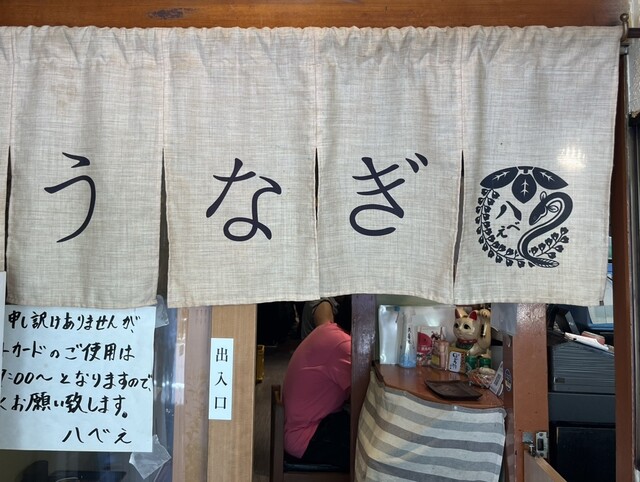 うなぎ
八べえ
申し訳けありませんが、
ーカードのご使用は
7:00〜となりますので、
くお願い致します。
八べえ
出入口